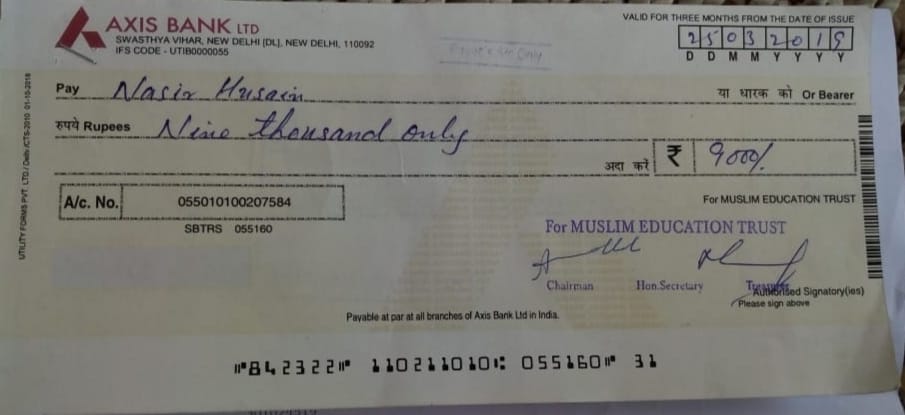 AXIS BANK LTD
SWASTHYA VIHAR, NEW DELHI [DL], NEW DELHI, 110092
IFS CODE - UTIB0000055
VALID FOR THREE MONTHS FROM THE DATE OF ISSUE
25032019
D D M M Y Y Y Y
Pay Nasir Husain या धारक को Or Bearer
रुपये Rupees Nine thousand only
अदा करें ₹ 9000/.
A/c. No. 055010100207584
SBTRS 055160
For MUSLIM EDUCATION TRUST
For MUSLIM EDUCATION TRUST
Chairman Hon.Secretary Treasurer
Authorised Signatory(ies)
Please sign above
Payable at par at all branches of Axis Bank Ltd in India.
⑈842322⑈ 110211010⑆ 055160⑈ 31
UTILITY FORMS PVT. LTD./ Delhi /CTS-2010 01-10-2018